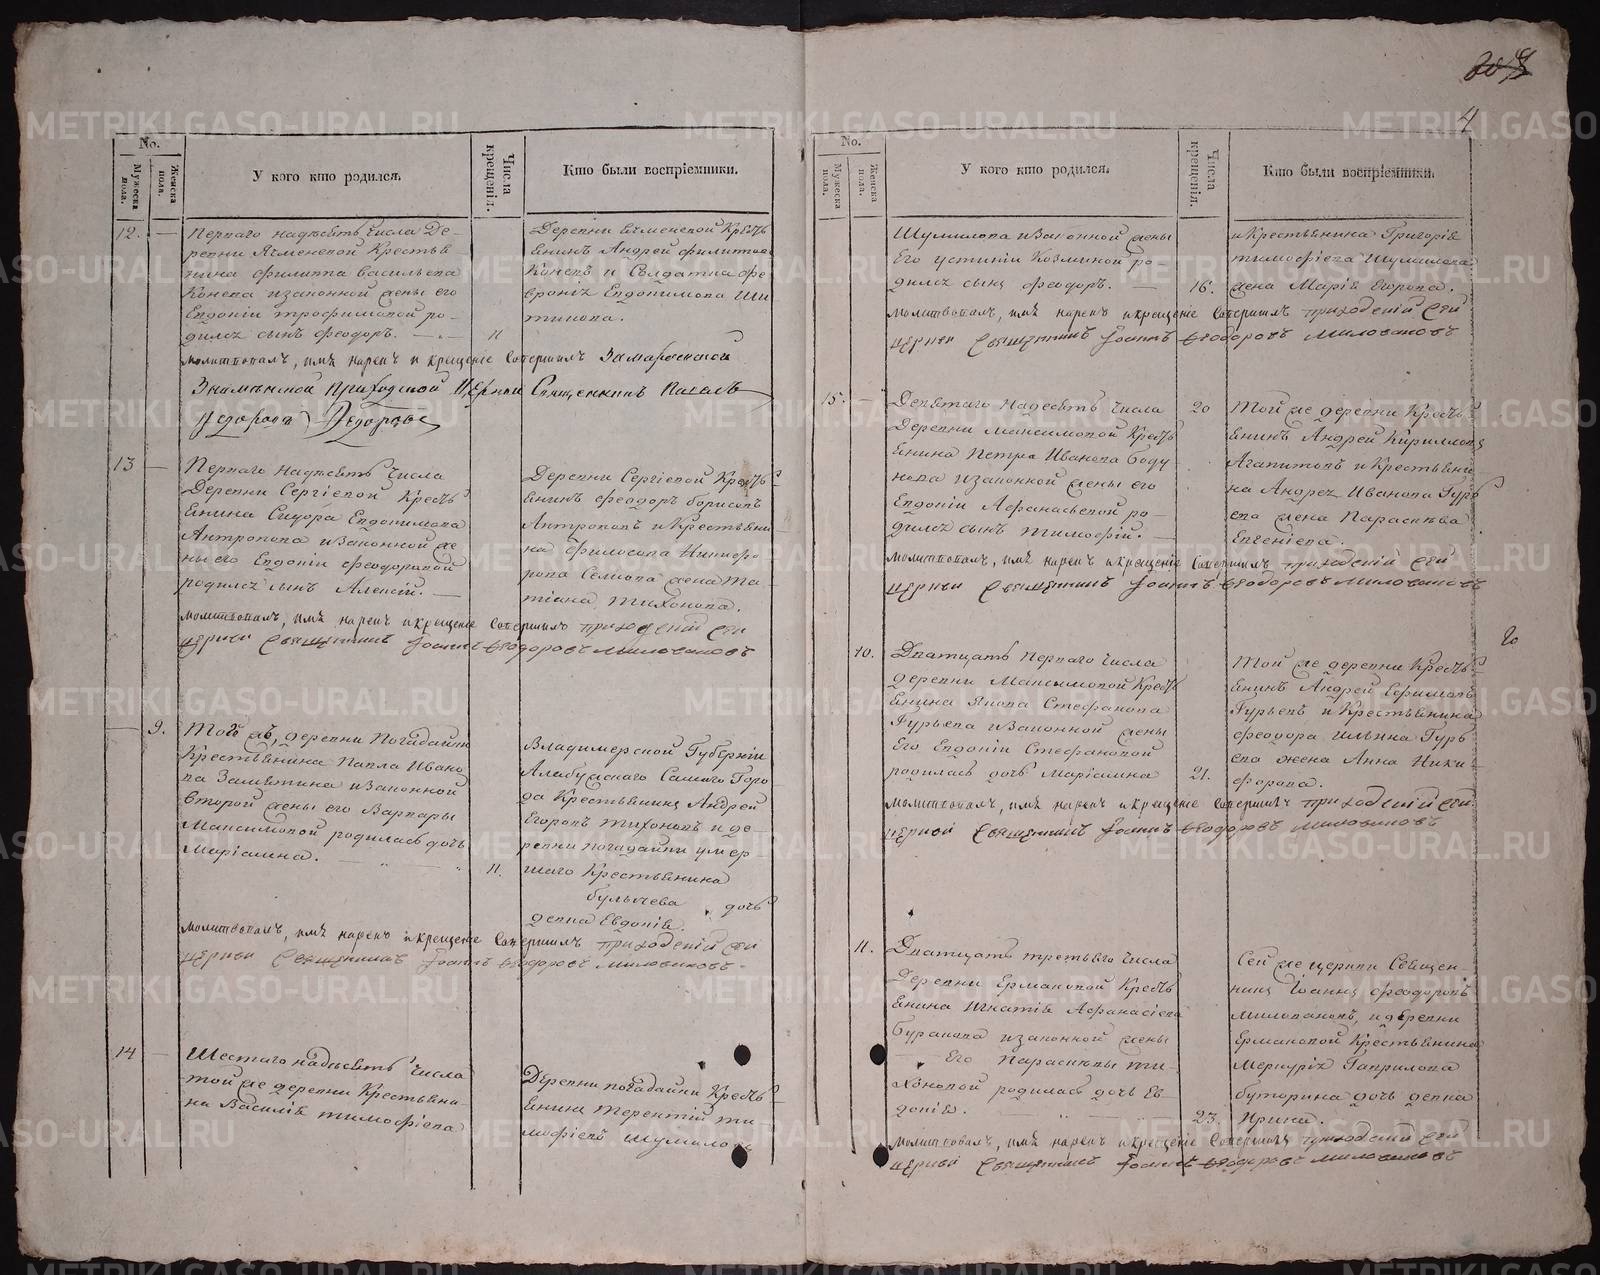 4
No.
Мужеска пола.
Женска пола.
У кого кто родился.
Числа крещенія.
Кто были воспріемники.
12.
Перваго надѣсять числа Де-
ревни Ячменевой Крестья
нина Филиппа Васильева
Конева изаконной жены его
Евдокіи Трофимовой ро-
дился сынъ Феодоръ.
11
Деревни Ячменевой Кресть
янинъ Андрей Филиппов
Коневъ и Солдатка Фе
вронія Евдокимова Ши
тикова.
молитвовалъ, имя нарекъ и крещеніе совершилъ
Знаменской приходской Церкви Священникъ
13
Перваго надѣсять числа
Деревни Сергіевой Кресть
янина Сидора Евдокимова
Антропова изаконной же
ны его Евдокіи Феодоровой
родился сынъ Алексій.
Деревни Сергіевой Кресть
янинъ Феодоръ Борисовъ
Антроповъ и Крестьяни
на Философа Никифо
рова жена Та
тіана Тихонова.
молитвовалъ, имя нарекъ и крещеніе совершилъ приходскій сей
церкви Священникъ Іоаннъ Феодоровъ Миловановъ
9.
Того жъ, деревни Погадайки
Крестьянина Павла Ивано
ва Замятина изаконной
второй жены его Варвары
Максимовой родилась дочь
Маріамна.
11.
Владимерской Губерніи
Города Крестьянинъ Андрей
Егоровъ Тихоновъ и де-
ревни Погадайки умер-
шаго Крестьянина
Булычева дочь
девка Евдокія.
молитвовалъ, имя нарекъ и крещеніе совершилъ приходскій сей
церкви Священникъ Іоаннъ Феодоровъ Миловановъ.
14
Шестаго надѣсять числа
той же деревни Крестьяни-
на Василія Тимофіева
Деревни Погадайки Кресть
янинъ Терентій Ти-
мофіевъ Шумиловъ
No.
Мужеска пола.
Женска пола.
У кого кто родился.
Числа крещенія.
Кто были воспріемники.
Шумилова изаконной жены
Его Устиніи Козминой ро-
дился сынъ Феодоръ.
16.
и Крестьянина Григорія
Тимофіева Шумилова
жена Марія
молитвовалъ, имя нарекъ и крещеніе совершилъ приходскій сей
церкви Священникъ Іоаннъ Феодоровъ Миловановъ
15.
Девятаго надесять числа
Деревни Максимовой Кресть
янина Петра Иванова Боду
нова изаконной жены его
Евдокіи Афанасьевой ро-
дился сынъ Тимофій.
20
Той же деревни Кресть
янинъ Андрей Кирилловъ
Агапитовъ и Крестьяни-
на Андрея Иванова Гурь
ева жена Параскева
Евгеніева.
молитвовалъ, имя нарекъ и крещеніе совершилъ приходскій сей
церкви Священникъ Іоаннъ Феодоровъ Миловановъ
10.
Дватцать перваго числа
деревни Максимовой Кресть
янина Якова Стефанова
Гурьева изаконной жены
Его Евдокіи Стефановой
родилась дочь Маріамна
21.
Той же деревни Кресть
янинъ Андрей Ефимовъ
Гурьевъ и Крестьянина
Феодора Ильина Гурь
ева жена Анна Ники-
форова.
20
молитвовалъ, имя нарекъ и крещеніе совершилъ приходскій сей
церкви Священникъ Іоаннъ Феодоровъ Миловановъ
11.
Дватцать третьяго числа
Деревни Ермаковой Кресть
янина Игнатія Афанасіева
Буракова изаконной жены
Его Параскевы Ти-
хоновой родилась дочь Ев-
докія.
23.
Сей же церкви Священ-
никъ Іоаннъ Феодоровъ
Миловановъ, и деревни
Ермаковой Крестьянина
Меркурія Гаврилова
Буторина дочь девка
Ирина.
молитвовалъ, имя нарекъ и крещеніе совершилъ приходскій сей
церкви Священникъ Іоаннъ Феодоровъ Миловановъ
METRIKI.GASO-URAL.RU